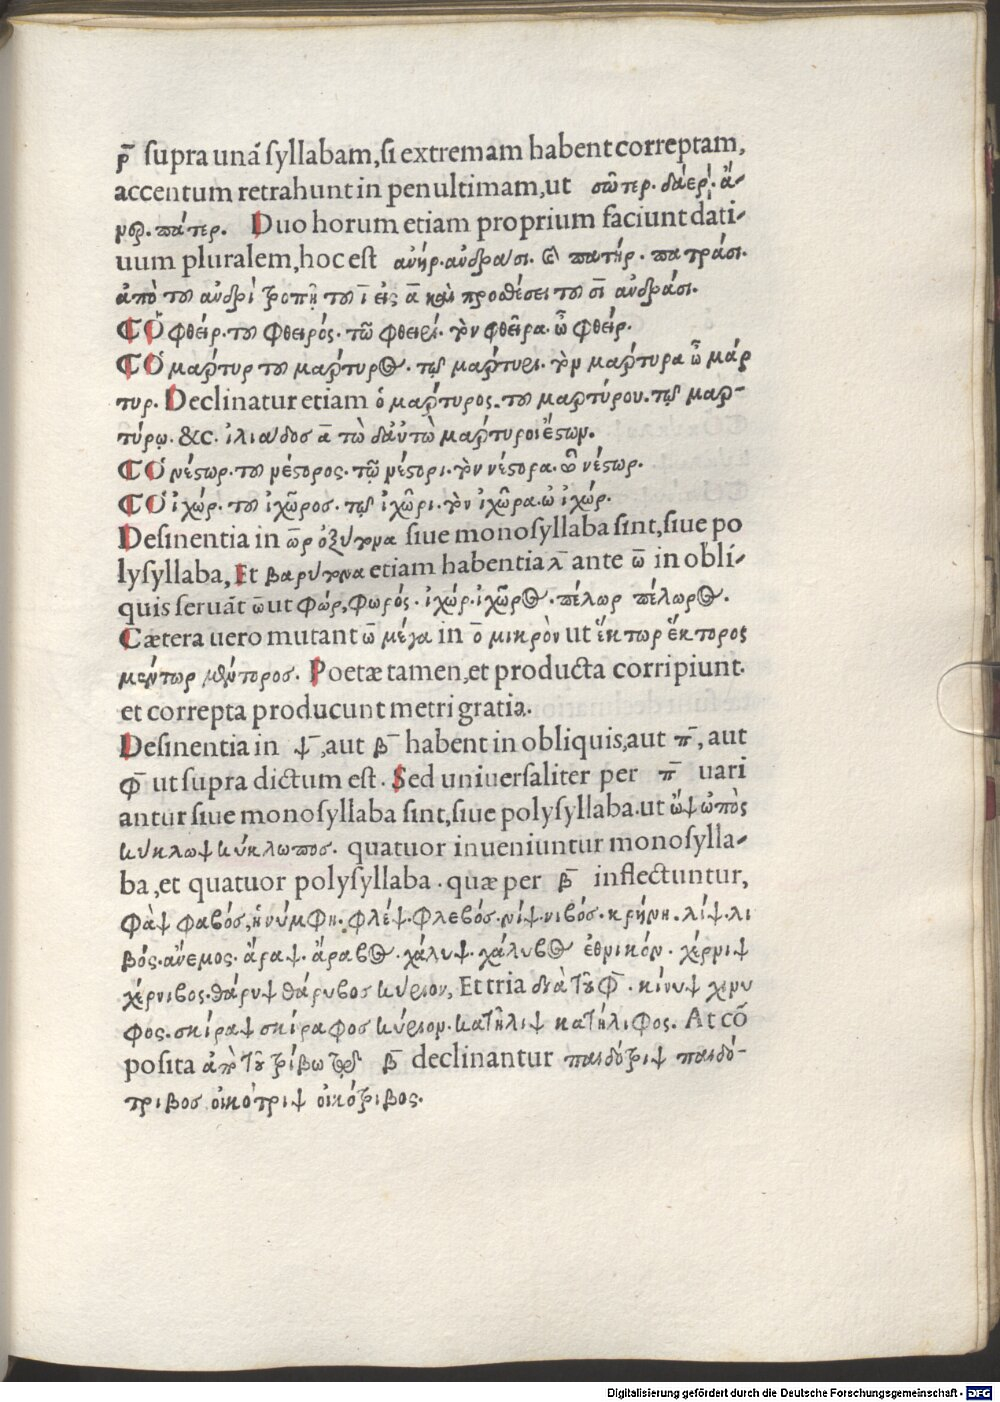 ρ̄ supra unã syllabam, si extremam habent correptam,
accentum retrahunt in penultimam, ut σῶτερ. δάερ. ἄ-
νερ. πάτερ. Duo horum etiam proprium faciunt dati-
uum pluralem, hoc est ἀνήρ. ἀνδράσι. καὶ πατήρ. πατράσι.
ἀπὸ τοῦ ἀνδρὶ τροπῇ τοῦ ῑ εἰς ᾱ καὶ προσθέσει τοῦ σῑ ἀνδράσι.
¶ Ὁ φθείρ. τοῦ φθειρός. τῶ φθειρί. τὸν φθεῖρα. ὦ φθείρ.
¶ Ὁ μάρτυρ τοῦ μάρτυρος. τῷ μάρτυρι. τὸν μάρτυρα ὦ μάρ
τυρ. Declinatur etiam ὁ μάρτυρος. τοῦ μαρτύρου. τῷ μαρ-
τύρῳ. &c. ἰλιάδος ᾱ τὼ δ' αὐτὼ μάρτυροι ἔστων.
¶ Ὁ νέστωρ. τοῦ νέστορος. τῷ νέστορι. τὸν νέστορα. ὦ νέστωρ.
¶ Ὁ ἰχώρ. τοῦ ἰχῶρος. τῷ ἰχῶρι. τὸν ἰχῶρα. ὦ ἰχώρ.
Desinentia in ω̄ρ ὀξύτονα siue monosyllaba sint, siue po
lysyllaba, Et βαρύτονα etiam habentia λ̄ ante ω̄ in obli-
quis seruãt ω̄ ut φώρ, φωρός. ἰχώρ. ἰχῶρος. πέλωρ πέλωρος.
Cætera uero mutant ω̄ μέγα in ο̄ μικρὸν ut ἕκτωρ ἕκτορος
μέντωρ μέντορος. Poetæ tamen, et producta corripiunt.
et correpta producunt metri gratia.
Desinentia in ψ̄, aut β̄ habent in obliquis, aut π̄, aut
φ̄ ut supra dictum est. Sed uniuersaliter per π̄ uari
antur siue monosyllaba sint, siue polysyllaba. ut ὤψ ὠπὸς
κύκλωψ κύκλωπος. quatuor inueniuntur monosylla-
ba, et quatuor polysyllaba. quæ per β̄ inflectuntur,
φὰψ φαβός, ἡ νύμφη. φλέψ. φλεβός. νίψ. νιβός. κρήνη. λίψ. λι
βός. ἄνεμος. ἄραψ. ἄραβος. χάλυψ. χάλυβος ἐθνικόν. χέρνιψ
χέρνιβος. θάρυψ θάρυβος κύριον, Et tria διὰ τοῦ φ̄. κίνυψ χινυ
φος. σκίραψ σκίραφος κύριον. κατῆλιψ κατήλιφος. At cõ
posita ἀπὸ τοῦ τρίβω διὰ τοῦ β̄ declinantur παιδότριψ παιδό-
τριβος οἰκότριψ οἰκότριβος.
Digitalisierung gefördert durch die Deutsche Forschungsgemeinschaft - DFG